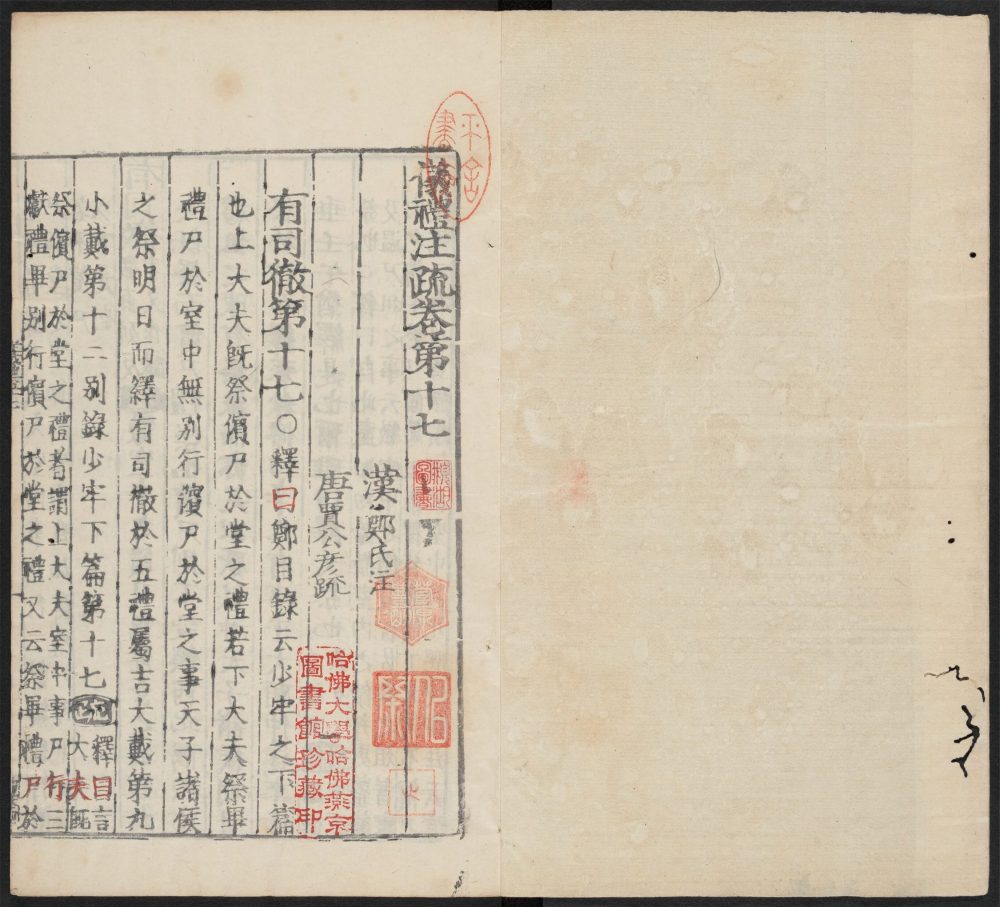 儀禮注疏卷第十七
漢鄭氏注
唐賈公彥疏
有司徹第十七○釋曰鄭目錄云少牢之下篇
也上大夫既祭儐尸於堂之禮若下大夫祭畢
禮尸於室中無別行儐尸於堂之事天子諸侯
之祭明日而繹有司徹於五禮屬吉大戴第九
小戴第十二別錄少牢下篇第十七 疏 釋曰言大夫既
祭儐尸於堂之禮者謂上大夫室中事尸行三
獻禮畢別行儐尸於堂之禮又云祭畢禮尸於
哈佛大學哈佛燕京
圖書館珍藏印